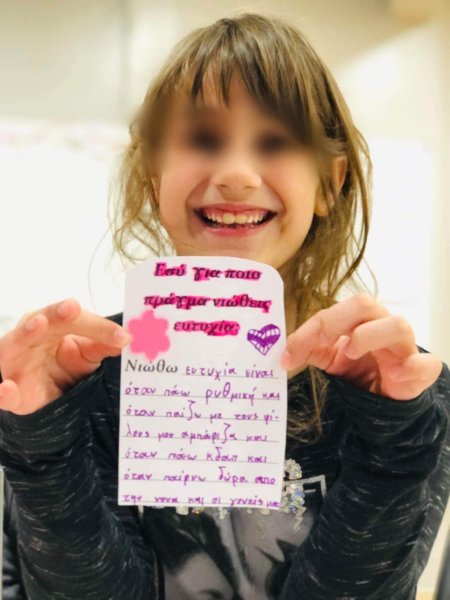 Εσύ για ποιο
πράγμα νιώθεις
ευτυχία
Νιώθω ευτυχία είναι
όταν πάω ρυθμική και
όταν παίζω με τους φί-
λους μου αμπάριζα και
όταν πάω κδαπ και
όταν παίρνω δύρα απο
την νονα και οι γονείς μο